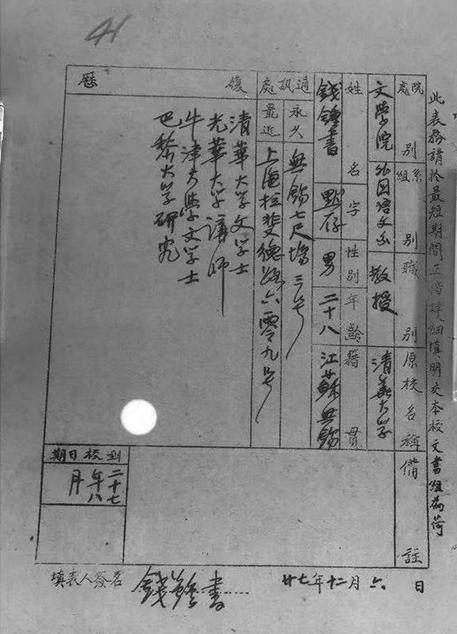 41
此表務請於最短期間正楷詳細填明交本校文書組為荷
院處別
文學院
系組別
外國語文系
職別
教授
原校名稱
清華大學
備註
姓名
錢鍾書
字
默存
性別
男
年齡
二十八
籍貫
江蘇無錫
通訊處
永久
無錫七尺場三號
最近
上海拉斐德路六零九號
履歷
清華大學文學士
光華大學講師
牛津大學文學士
巴黎大學研究
到校日期
二十七年八月
填表人簽名
錢鍾書
廿七年十二月六日